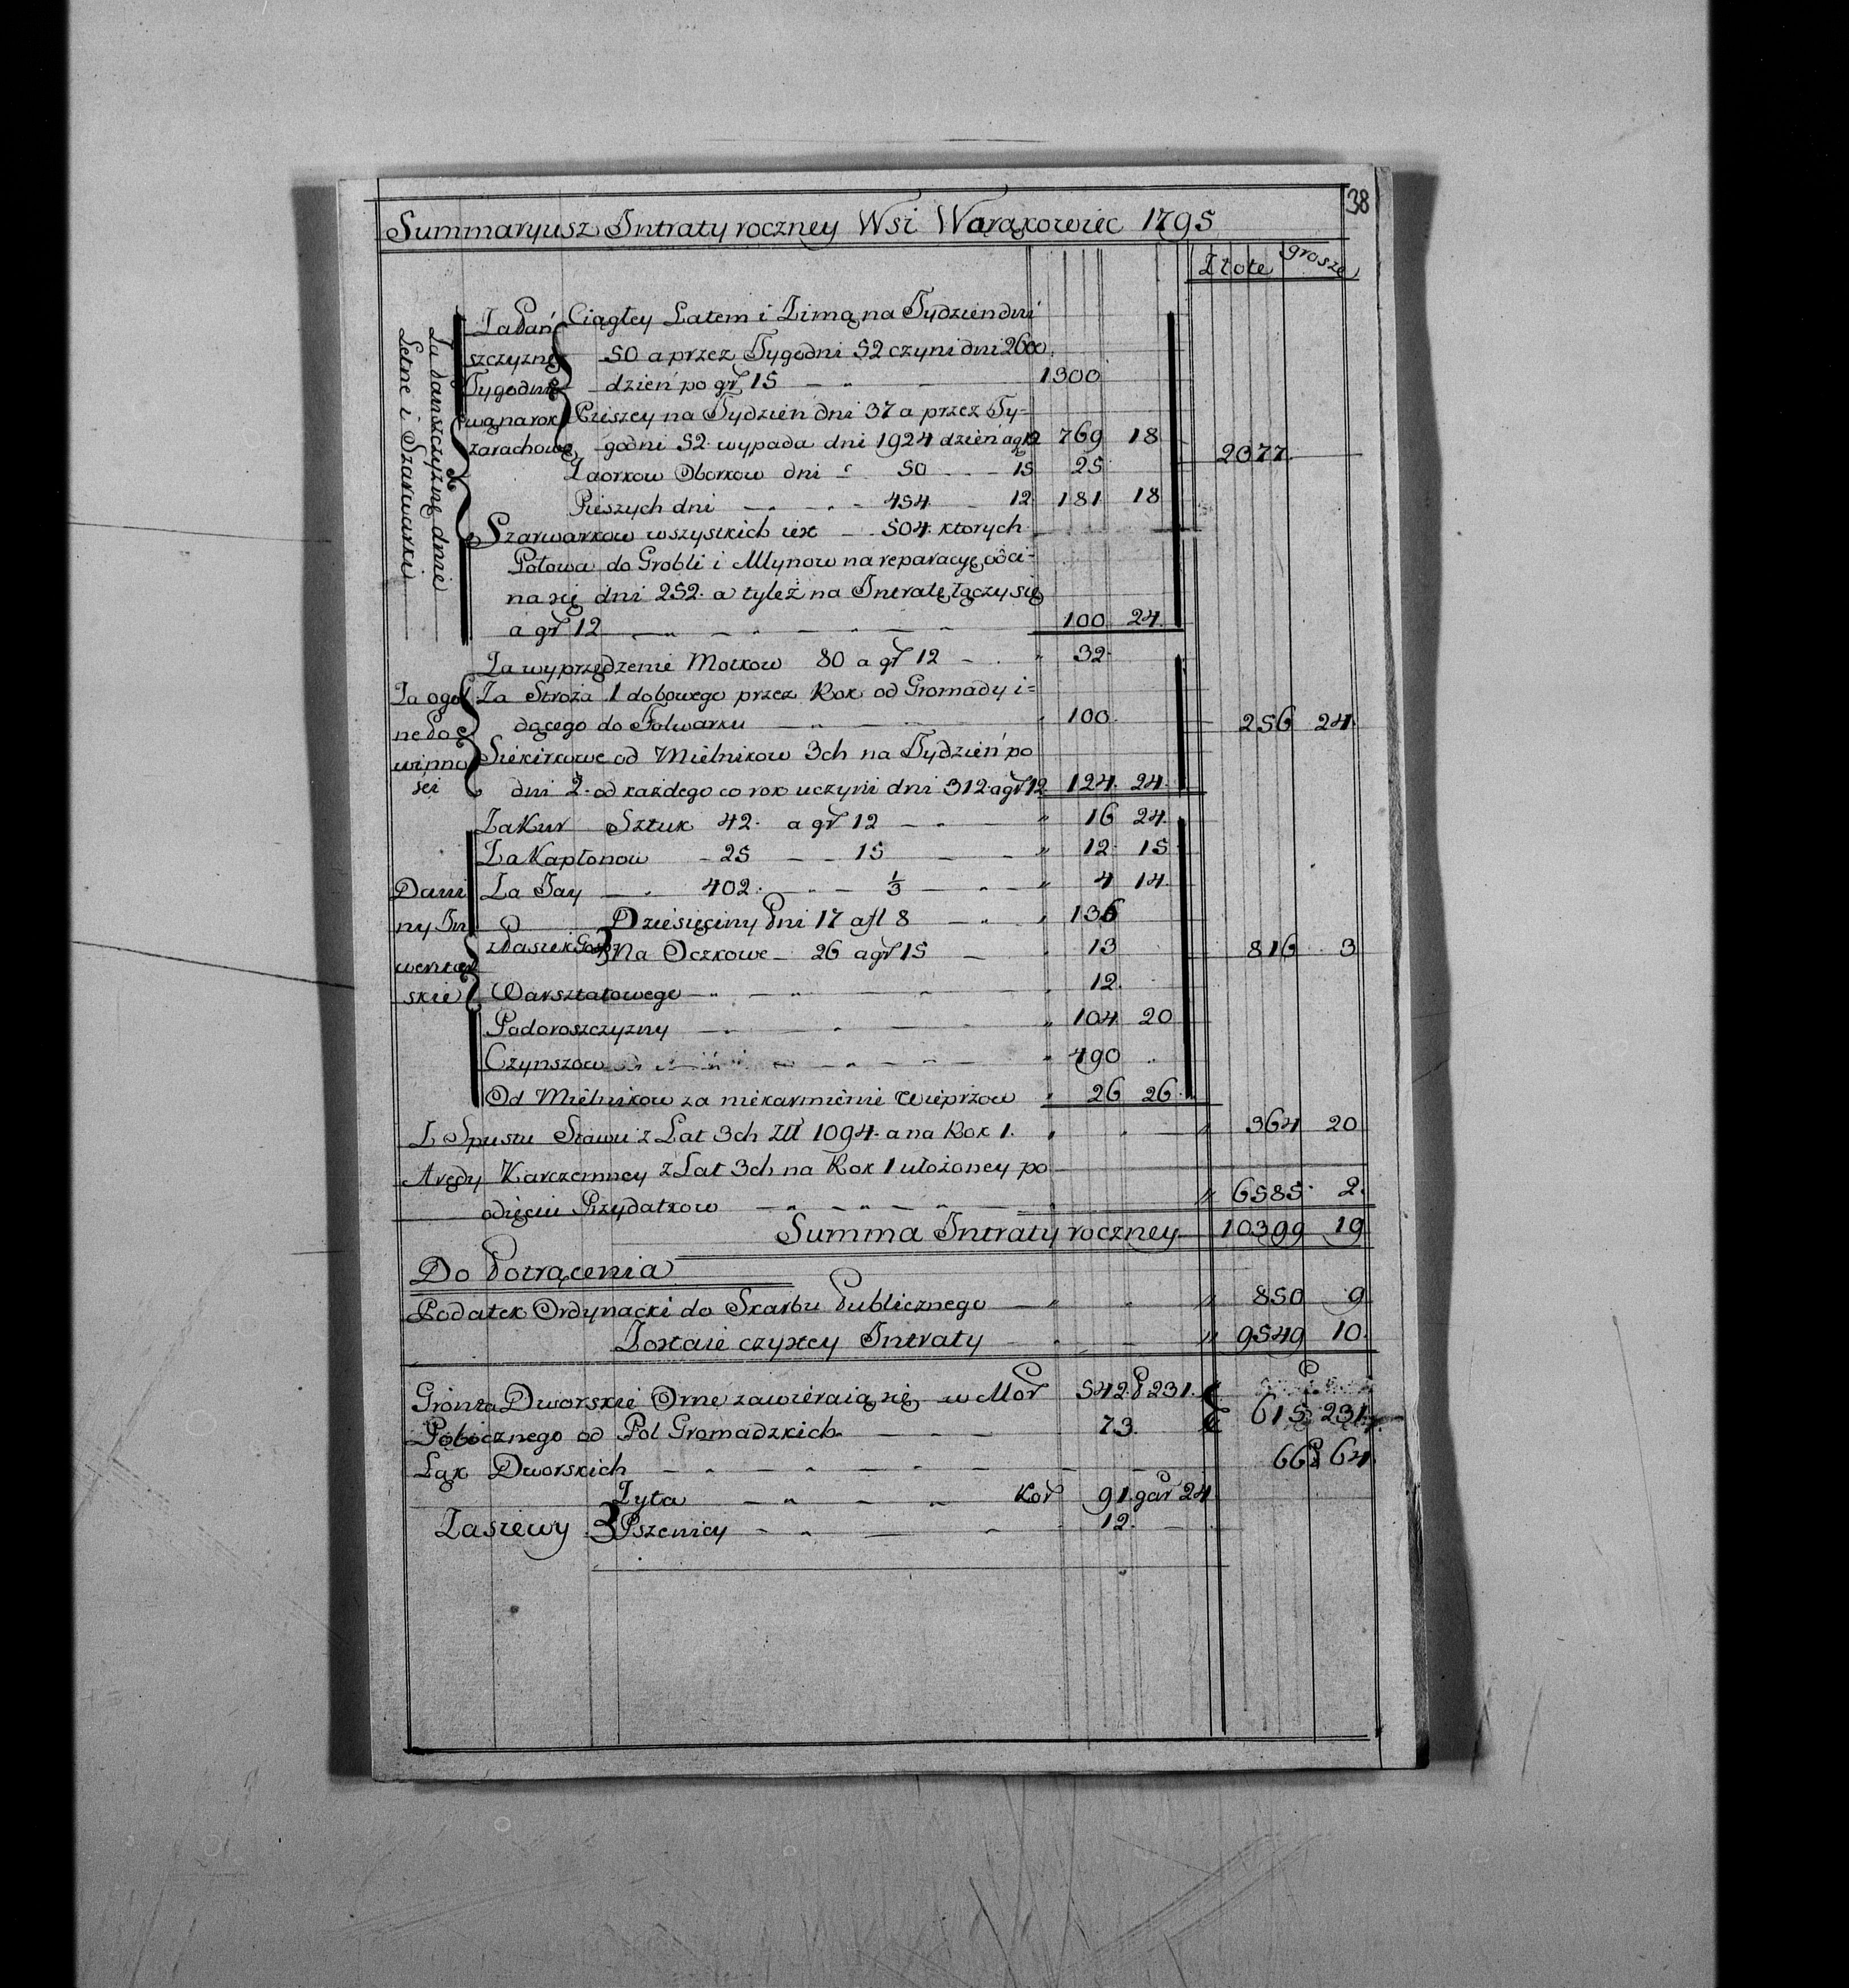 38
Summaryusz Intraty roczney Wsi Warąxowiec 1795
Złote grosze
Za Pańszczyznę dnie
Letne i Szarwarki
Za Pań
szczyznę
Tygodnio
wą na rok
zarachowa
Ciągłey Latem i Zimą na Tydzien dni
50 a przez Tygodni 52 czyni dni 2600
dzień po gr 15 1300
Pieszey na Tydzień dni 37 a przez Ty=
godni 52 wypada dni 1924 dzień a gr 12 769 18
2377
Zaorkow Oborkow dni 50 15 25
Pieszych dni 454 12 181 18
Szarwarkow wszystkich iest 504 ktorych
Połowa do Grobli i Młynow na reparacyę odci=
na się dni 252. a tyleż na Intratę łączy się
a gr 12 100 24
Za wyprzędzenie Motkow 80 a gr 12 32
Za ogol
ne Po
winno
ści
Za Stroża 1 dobowego przez Rok od Gromady i=
dącego do Folwarku 100
256 24
Siekirkowe od Mielnikow 3ch na Tydzień po
dni 2 od każdego co rok uczyni dni 312 a gr 12 124 24
Za Kur Sztuk 42 a gr 12 16 24
Za Kapłonow 25 15 12 15
Dani
ny In
wentar
skie
Za Jay 402 1/3 4 14
Dziesięciny Pni 17 a fl 8 136
z Pasiek Na Oczkowe 26 a gr 15 13
816 3
Warsztatowego 12
Podoroszczyzny 104 20
Czynszow 490
Od Mielnikow za niekarmienie Wieprzow 26 26
Z Spustu Stawu z Lat 3ch Zll 1094 a na Rok 1. 364 20
Arędy Karczemney z Lat 3ch na Rok 1 ułożoney po
odięciu Przydatkow 6585 2
Summa Intraty roczney 10399 19
Do Potrącenia
Podatek Ordynacki do Skarbu Publicznego 850 9
Zostaie czystey Intraty 9549 10
Gronta Dworskie Orne zawieraią się w Mor 542 P 231
Pobocznego od Pol Gromadzkich 73
615 231
Łąk Dworskich 66 P 64
Zasiewy
Żyta Kor 91 gar 24
Pszenicy 12